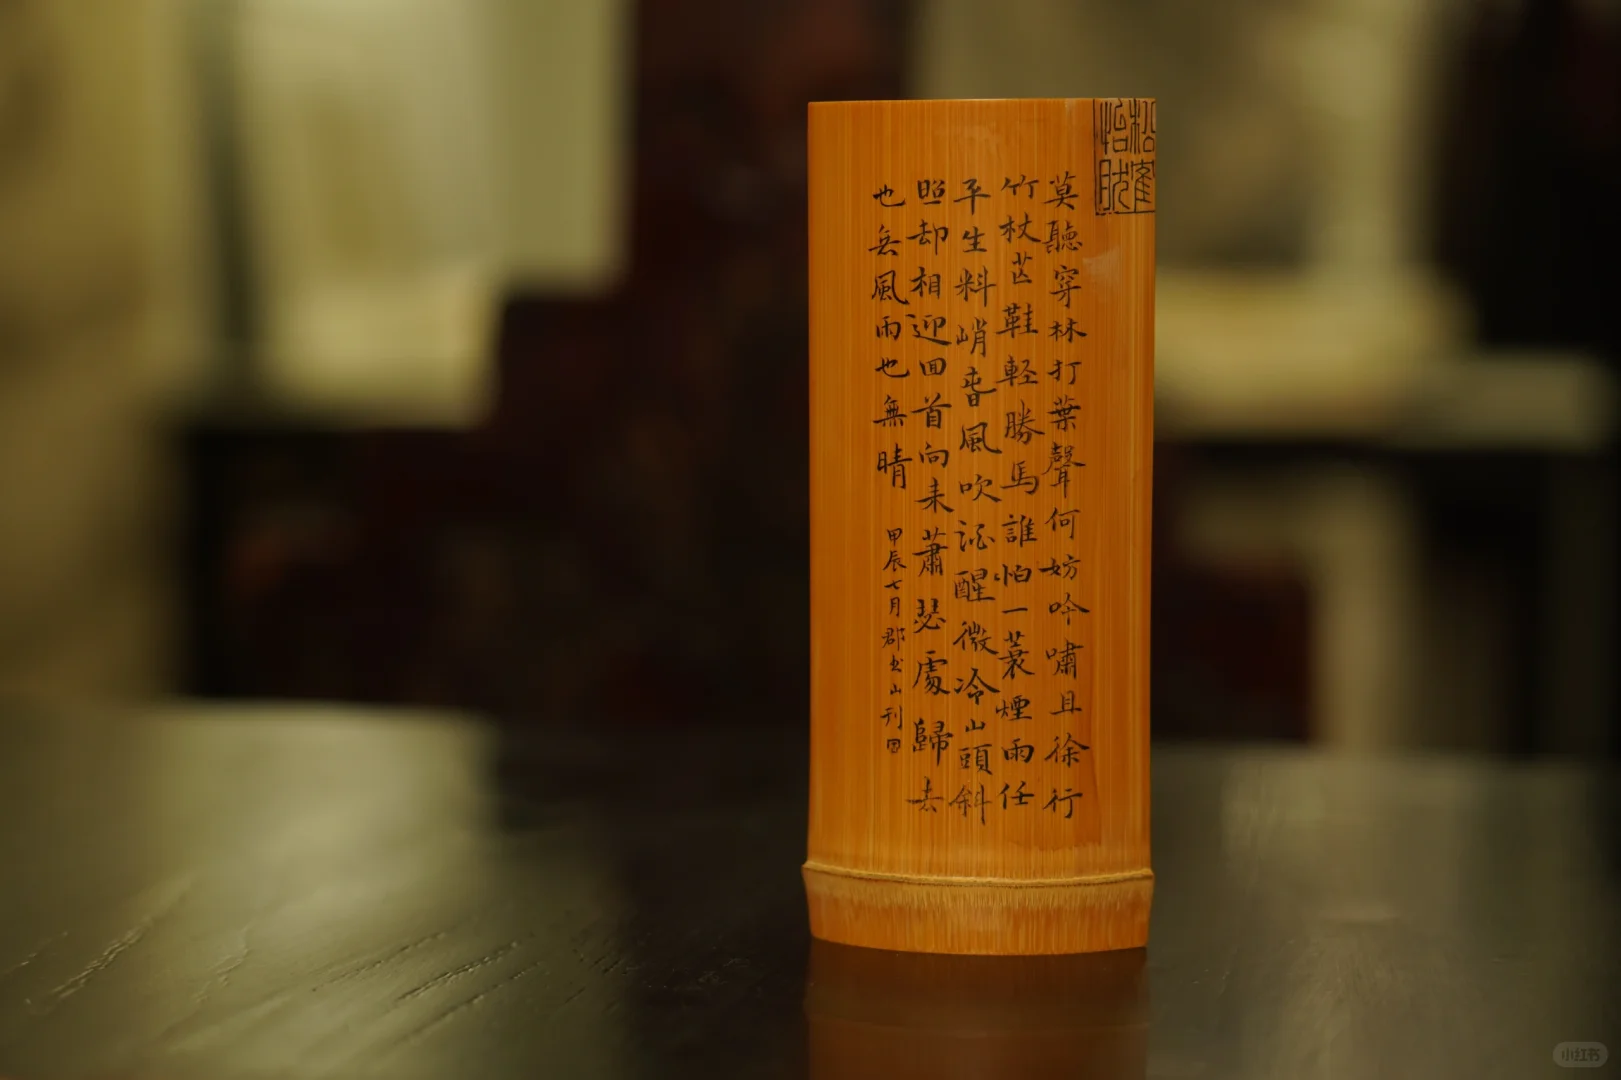 莫聽穿林打葉聲何妨吟嘯且徐行
竹杖芒鞋軽勝馬誰怕一蓑煙雨任
平生料峭萅風吹酒醒微冷山頭斜
照却相迎回首向来蕭瑟處歸去
也無風雨也無晴
甲辰七月郡山刊
小红书